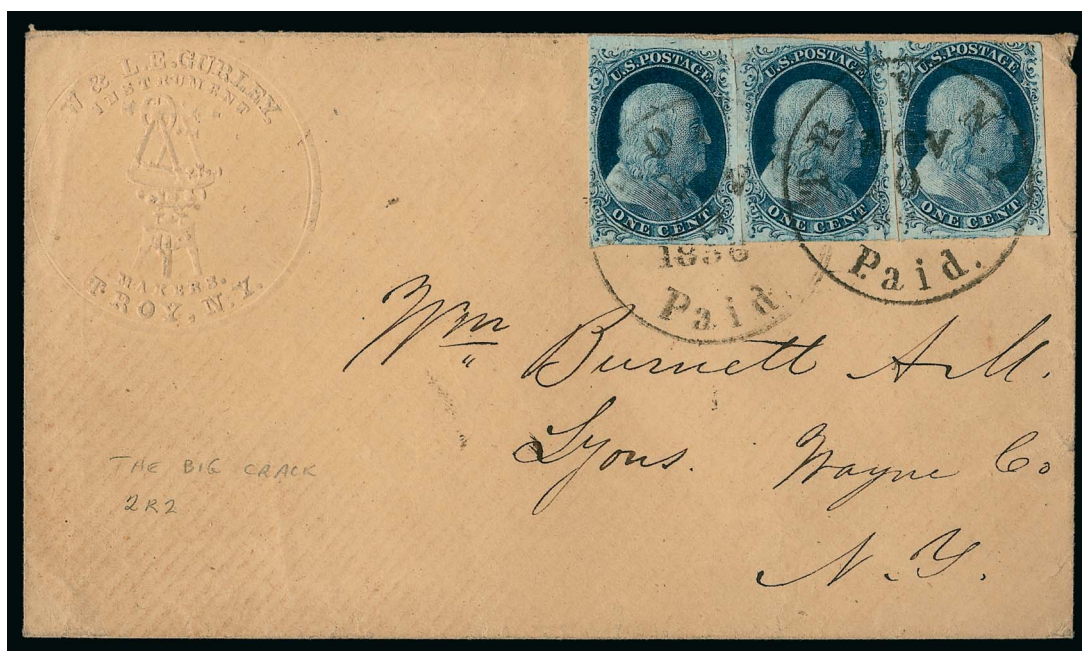 W & L.E. GURLEY,
INSTRUMENT
MAKERS.
TROY, N.Y.
U.S. POSTAGE
ONE CENT
U.S. POSTAGE
ONE CENT
U.S. POSTAGE
ONE CENT
1856
Paid
NOV
Paid.
Wm Burnett A.M.
Lyons. Wayne Co
N.Y.
THE BIG CRACK
2R2